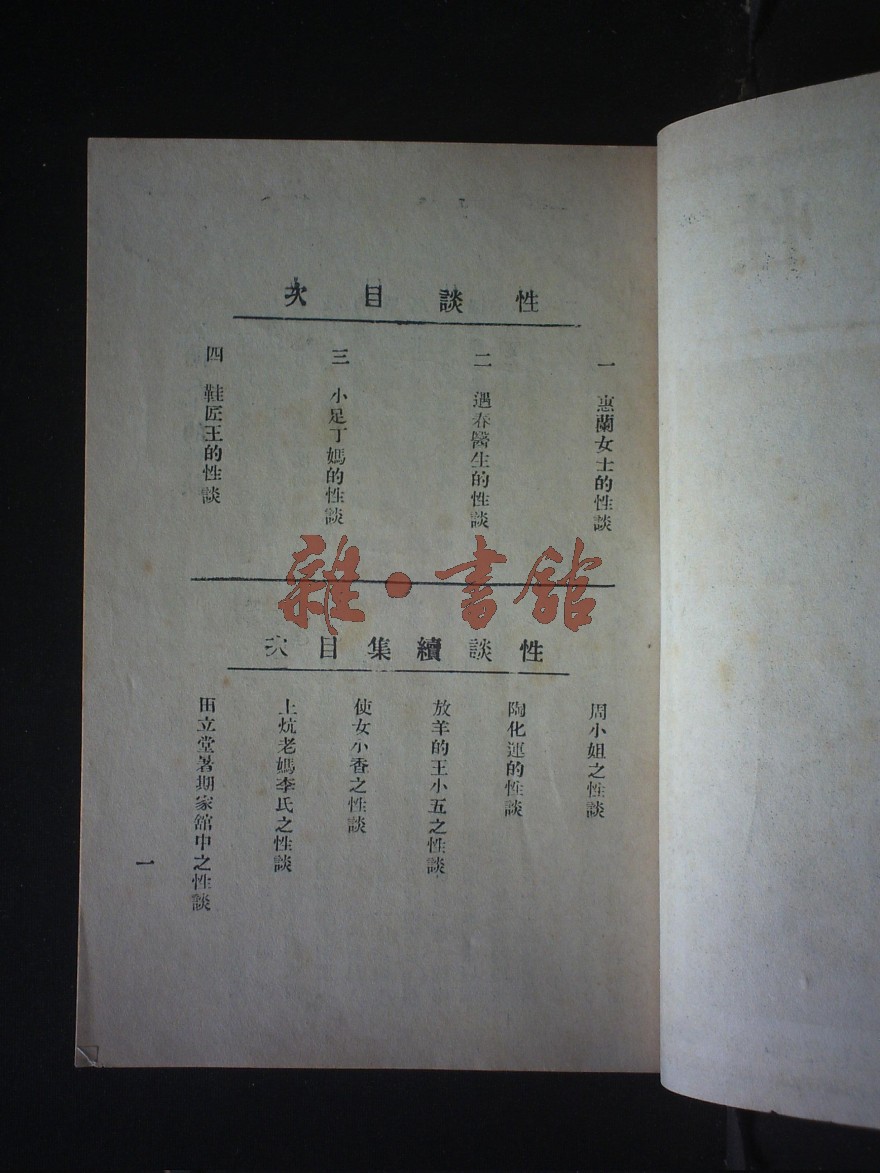 性談目次
一 惠蘭女士的性談
二 遇春醫生的性談
三 小足丁媽的性談
四 鞋匠王的性談
性談續集目次
周小姐之性談
陶化運的性談
放羊的王小五之性談
使女小香之性談
上炕老媽李氏之性談
田立堂暑期家舘中之性談
一
雜·書館